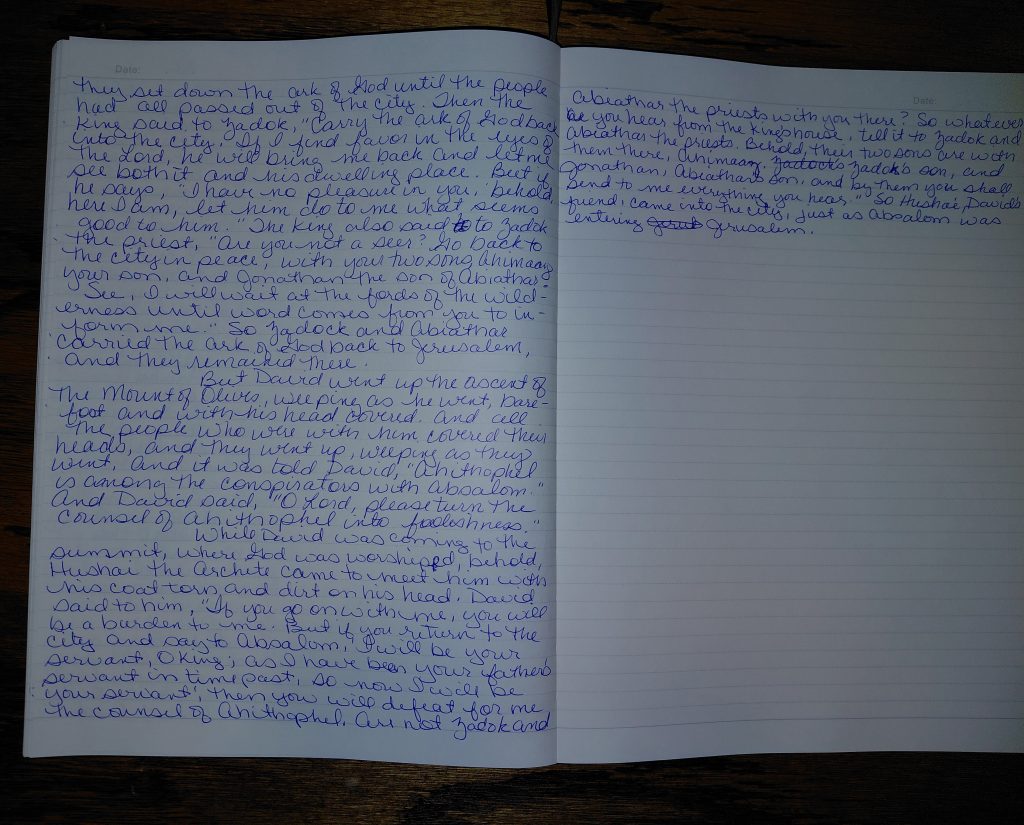 Date:
they set down the ark of God until the people
had all passed out of the city. Then the
King said to Zadok, "Carry the ark of God back
into the city. If I find favor in the eyes of
the Lord, he will bring me back and let me
see both it and his dwelling place. But if
he says, "I have no pleasure in you, behold,
here I am, let him do to me what seems
good to him." The King also said to to Zadok
the priest, "Are you not a seer? Go back to
the city in peace, with your two song Ahimaaz
your son, and Jonathan the son of Abiathar
See, I will wait at the fords of the wild-
erness until word comes from you to in-
form me." So Zadock and Abiathar
carried the ark of God back to Jerusalem,
and they remained there.
But David went up the ascent of
the Mount of Olives, weeping as he went, bare-
foot and with his head covered. And all
the people who were with him covered their
heads, and they went up, weeping as they
went. And it was told David, "Ahithophel
is among the conspirators with Absalom."
And David said, "O Lord, please turn the
counsel of Ahithophel into foolishness."
While David was coming to the
summit, where God was worshipped, behold,
Hushai the Archete came to meet him with
his coat torn and dirt on his head. David
said to him, "If you go on with me, you will
be a burden to me. But if you return to the
city and say to Absalom, 'I will be your
servant, O King; as I have been your father's
servant in time past, so now I will be
your servant', then you will defeat for me
the counsel of Ahithophel. Are not Zadok and
Date:
Abiathar the priests with you there? So whatever
be you hear from the King's house, tell it to Zadok and
Abiathar the priests. Behold, their two sons are with
them there, Ahimaaz, Zadock's Zadok's son, and
Jonathan, Abiathar's son, and by them you shall
send to me everything you hear." So Hushai, David's
friend, came into the city, just as Absalom was
entering Jerusalem.